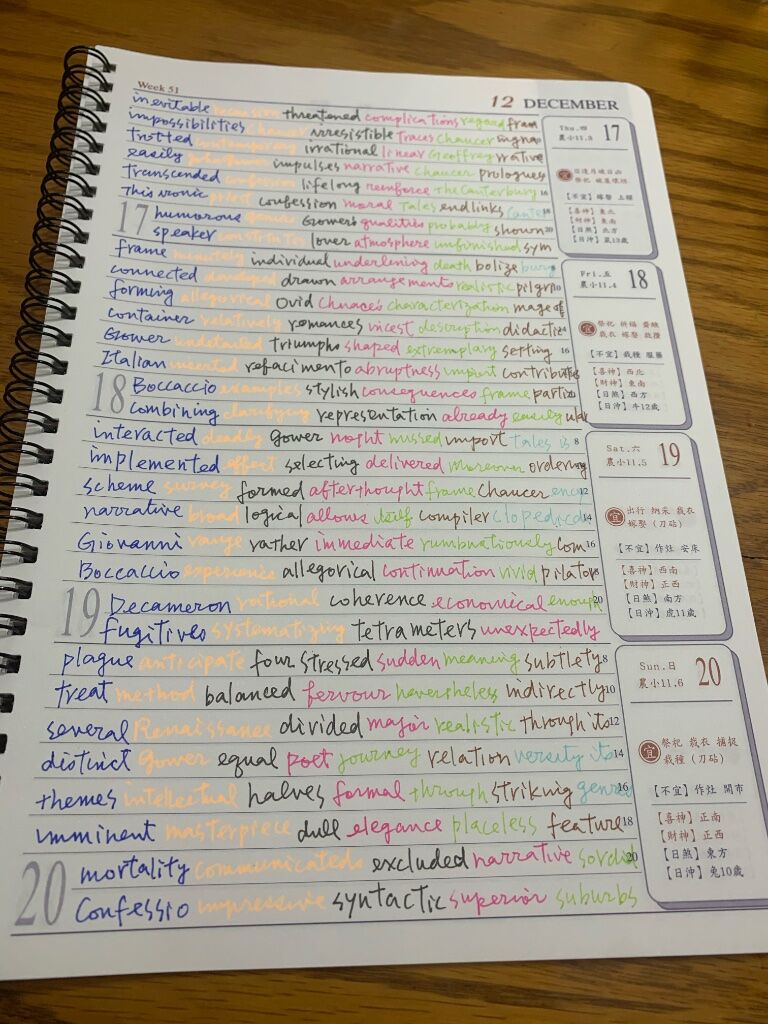 Week 51
12 DECEMBER
inevitable recursion threatened complications regard fram
impossibilities chaucer irresistible traces chaucer ingna
trotted contemporary irrational linear Geoffrey rrative
easily impulses narrative chaucer prologues
transcended confession lifelong reinforce the Canterbury 16
This ironic priest confession moral tales endlinks Cante 18
17 humorous genius Gower's qualities probably shown 20
speaker constitutes lover atmosphere unfinished sym
frame minutely individual underlening death bolize
connected developed drawn arrangements realistic pilgri 10
forming allegorical Ovid Chaucer's characterization mage of
container relatively romances nicest description didactic 14
Gower undetailed triumphs shaped extremplary setting 16
Italian inserted refacimento abruptness import contributes
18 Boccaccio examples stylish consequences frame partic 20
combining clarifying representation already easily ular
interacted deadly Gower naght missed import Tales is 8
implemented effect selecting delivered Moreover ordering
scheme survey formed afterthought frame Chaucer ency 12
narrative broad logical allows itself compiler clopedic 14
Giovanni range rather immediate rumbuntiously com 16
Boccaccio experience allegorical continuation vivid pilator 18
19 Decameron rational coherence economical enough 20
fugitives systematizing tetrameters unexpectedly
plague anticipate four stressed sudden meaning subtlety 8
treat method balanced fervour nevertheless indirectly 10
several Renaissance divided major realistic through its 12
distinct Gower equal poet journey relation versity its 14
themes intellectual halves formal through striking genre 16
imminent masterpiece dull elegance placeless feature 18
mortality communicateds excluded narrative sordid 20
20 Confessio impressive syntactic superior suburbs
Thu.四 17
農小11.3
宜 日逢月破日凶
祭祀 破屋壞垣
【不宜】嫁娶 上樑
【喜神】東北
【財神】東南
【日煞】北方
【日沖】鼠13歲
Fri.五 18
農小11.4
宜 祭祀 祈福 齋醮
裁衣 嫁娶 栽種
【不宜】栽種 服藥
【喜神】西北
【財神】東南
【日煞】西方
【日沖】牛12歲
Sat.六 19
農小11.5
宜 出行 納采 裁衣
嫁娶（刀砧）
【不宜】作灶 安床
【喜神】西南
【財神】正西
【日煞】南方
【日沖】虎11歲
Sun.日 20
農小11.6
宜 祭祀 裁衣 捕捉
栽種（刀砧）
【不宜】作灶 開市
【喜神】正南
【財神】正西
【日煞】東方
【日沖】兔10歲